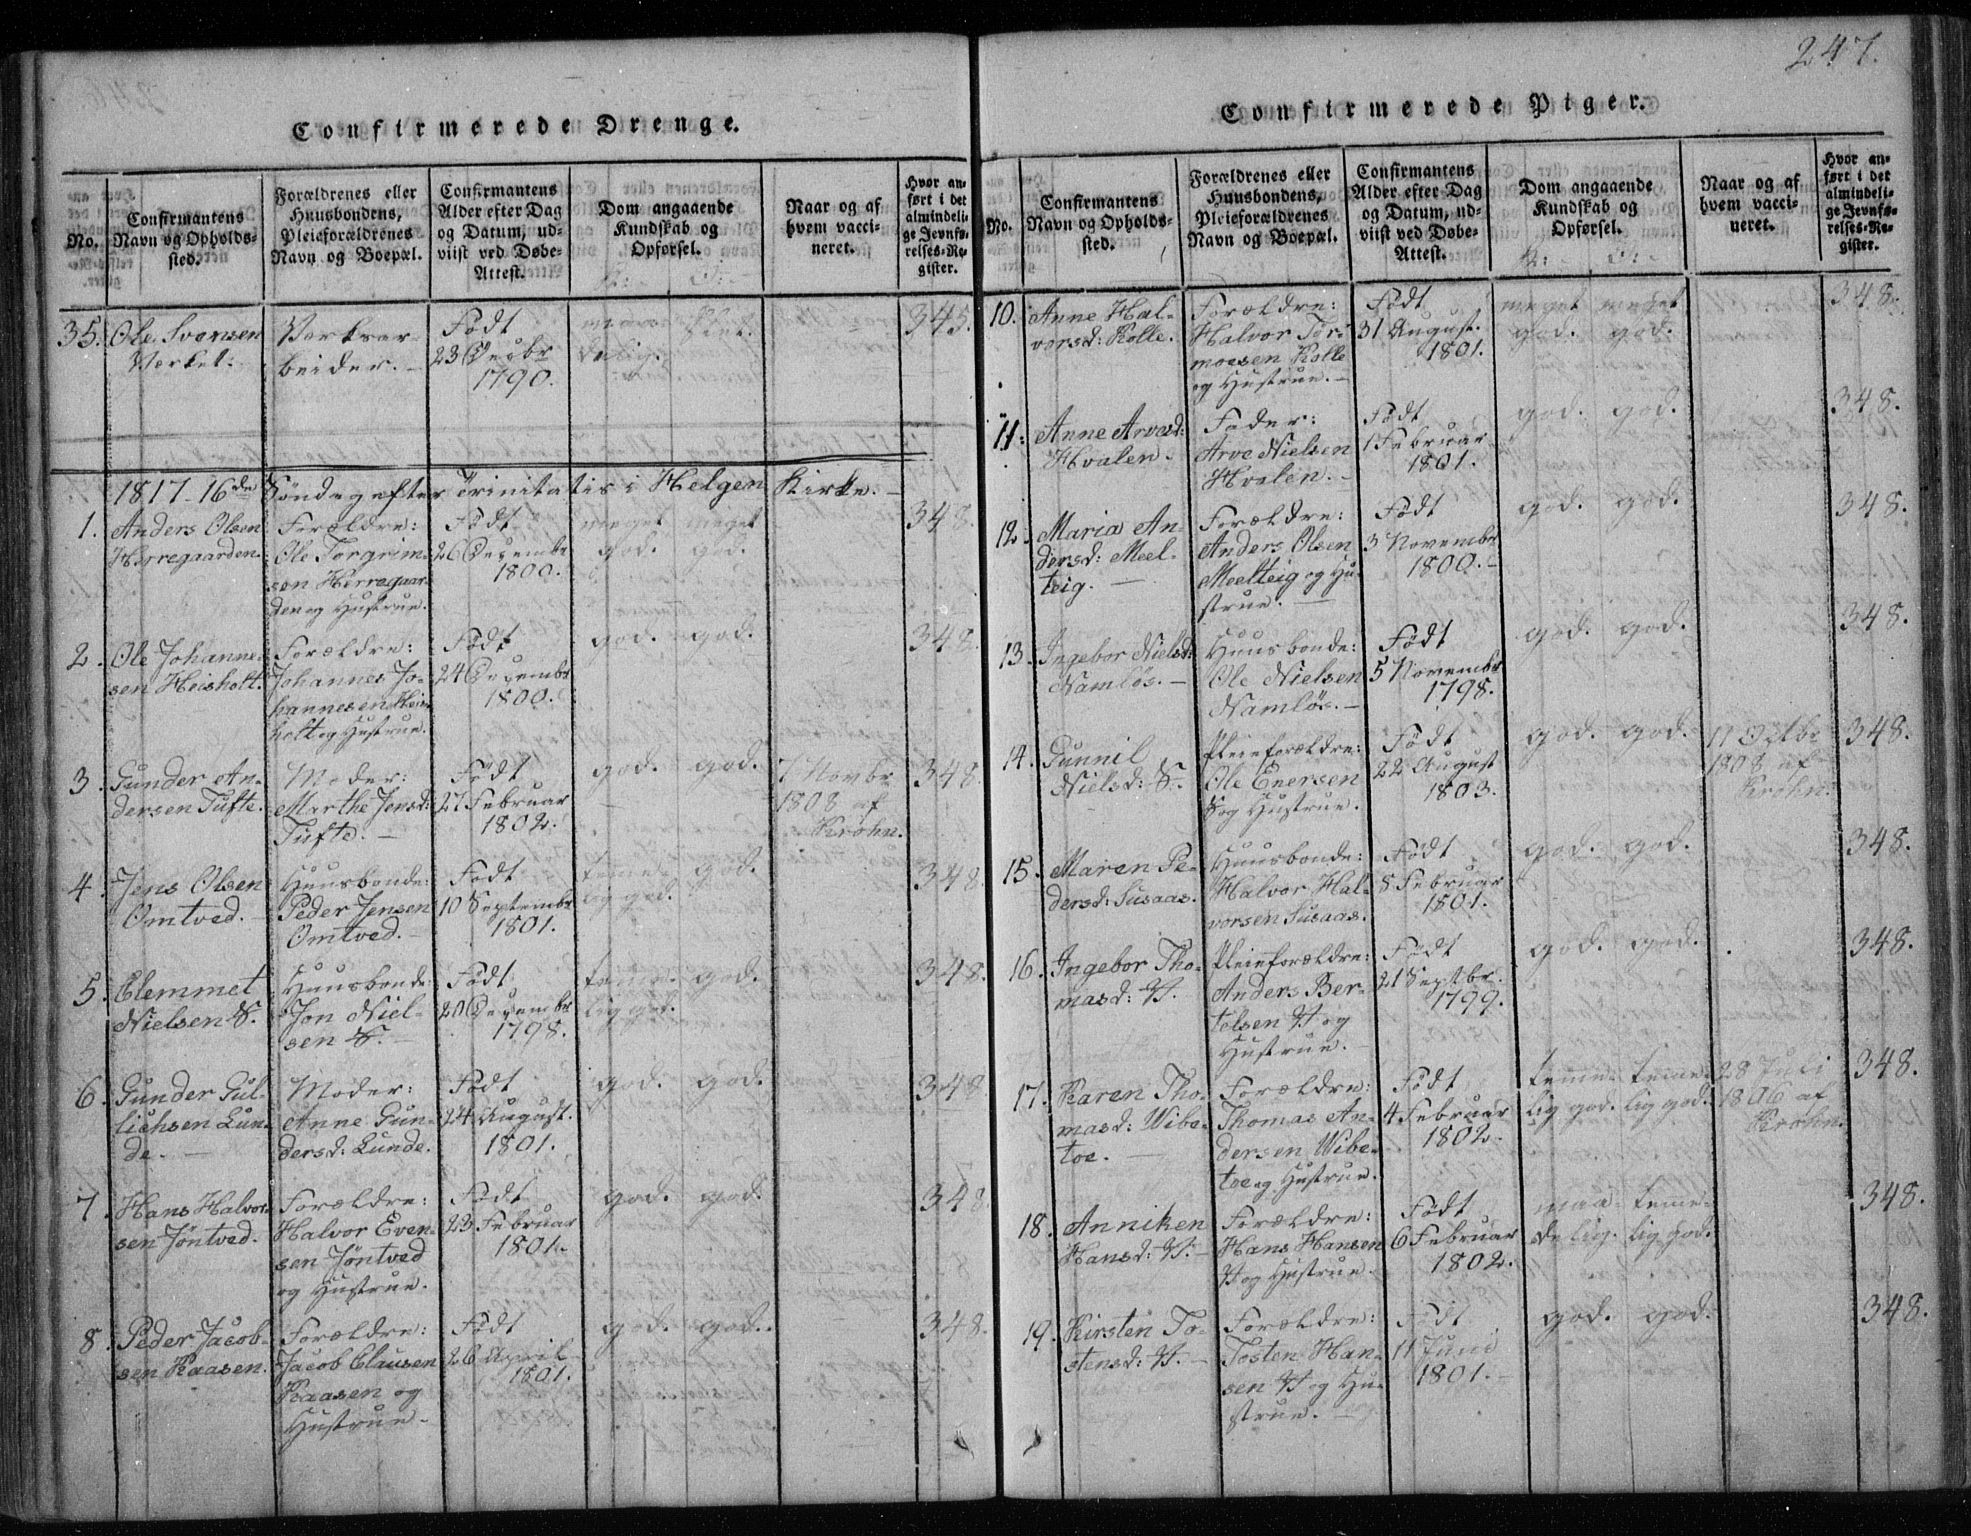 Confirmerede Drenge.
No.
Confirmantens
Navn og Opholds-
sted.
Forældrenes eller
Huusbondens,
Pleieforældrenes
Navn og Boepæl.
Confirmantens
Alder efter Dag
og Datum, ud-
viist ved Døbe-
Attest.
Dom angaaende
Kundskab og
Opførsel.
K: O:
Naar og af
hvem vacci-
neret.
Hvor an-
ført i det
almindeli-
ge Jevnfø-
relses-Re-
gister.
35. Ole Svensen
Værket.
Verksar-
beider.
Født
23 Decbr
1790.
maae-
delig.
Slet.
345.
1817 - 16de Søndag efter Trinitatis i Helgen Kirke.
1. Anders Olsen
Herregaarden.
Forældre:
Ole Torgrim-
sen Herregaar-
den og Hustrue.
Født
26 Decembr
1800.
meget
god.
meget
god.
348.
2. Ole Johanne-
sen Heisholt.
Forældre:
Johannes Jo-
hannesen Heis-
holt og Hustrue.
Født
24 Decembr
1800.
god. god.
348.
3. Gunder An-
dersen Tufte.
Moder:
Marthe Jensd:
Tufte.
Født
27 Februar
1802.
god. god.
7 Novbr
1808 af
Krohn.
348.
4. Jens Olsen
Omtved.
Huusbonde:
Peder Jensen
Omtved.
Født
10 Septembr
1801.
teme-
lig god.
god.
348.
5. Clemmet
Nielsen S.
Huusbonde:
Jon Niel-
sen S.
Født
20 Decembr
1798.
teme-
lig god.
god.
348.
6. Gunder Gul-
lichsen Lun-
de.
Moder:
Anne Gun-
dersd: Lunde.
Født
24 August.
1801.
god. god.
348
7. Hans Halvor-
sen Jøntved.
Forældre:
Halvor Even-
sen Jøntved
og Hustrue.
Født
23 Februar
1801.
god. god.
348.
8. Peder Jacob-
sen Kaasen.
Forældre:
Jacob Clausen
Kaasen og
Hustrue.
Født
26 April
1801.
god. god.
348.
247.
Confirmerede Piger.
No.
Confirmantens
Navn og Opholds-
sted.
Forældrenes eller
Huusbondens,
Pleieforældrenes
Navn og Boepæl.
Confirmantens
Alder efter Dag
og Datum, ud-
viist ved Døbe-
Attest.
Dom angaaende
Kundskab og
Opførsel.
K: O:
Naar og af
hvem vacci-
neret.
Hvor an-
ført i det
almindeli-
ge Jevnfø-
relses-Re-
gister.
10. Anne Hal-
vorsd: Kolle.
Forældre:
Halvor Tor-
moesen Kolle
og Hustrue.
Født
31 August.
1801.
meget
god.
meget
god.
348.
11. Anne Arvesd:
Hvalen.
Fader:
Arve Nielsen
Hvalen.
Født
1 Februar
1801.
god. god.
348.
12. Maria An-
dersd: Meel-
teig.
Forældre:
Anders Olsen
Meelteig og Hu-
strue.
Født
3 Novembr
1800.
god. god.
348.
13. Ingebor Nielsd:
Namløs.
Huusbonde:
Ole Nielsen
Namløs.
Født
5 Novembr
1798.
god. god.
348.
14. Gunnil
Nielsd: S.
Pleieforældre:
Ole Enersen
S og Hustrue.
Født
22 August
1803.
god. god.
11 Octbr
1808 af
Krohn.
348.
15. Maren Pe-
dersd: Susaas.
Huusbonde:
Halvor Hal-
vorsen Susaas.
Født
8 Februar
1801.
god. god.
348.
16. Ingebor Tho-
masd: H.
Pleieforældre:
Anders Ber-
telsen H og
Hustrue.
Født
21 Septbr.
1799.
god. god.
348.
17. Karen Tho-
masd: Wibe-
toe.
Forældre:
Thomas An-
dersen Wibe-
toe og Hustrue.
Født
4 Februar
1802.
teme-
lig god.
teme-
lig god.
28 Juli
1806 af
Krohn.
348.
18. Anniken
Hansd: H.
Forældre:
Hans Hansen
H og Hustrue.
Født
6 Februar
1802.
maa-
delig.
teme-
lig god.
348.
19. Kirsten To-
stensd: H.
Forældre:
Tosten Han-
sen H og Hu-
strue.
Født
11 Juni
1801.
god. god.
348.